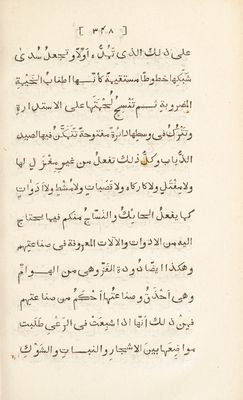 [ ٣٤٨ ]
على ذلك الذى تهلّ اوّلا وتجعل سُدىٰ
شبكها خطوطا مستقيمة كانّها اطناب الخيمة
المضروبة ثم تنسج لحمتها على الاستدارة
وتترك فى وسطها دائرة مفتوحة تتمكّن فيها لصيد
الذباب وكلّ ذلك تفعل من غير مغزل لها
ولا مفتل ولا كاركاه ولا قصبات ولا مشط ولا ادوات
كما يفعل الحائك والنسّاج منكم فيما يحتاج
اليه من الادوات والآلات المعروفة فى صناعتهم
وهكذا ايضا دودة القزّ وهى من الهوامّ
وهى احذق وصناعتها احكم من صناعتهم
فمن ذلك انّها اذا شبعت فى الرعى طلبت
مواضعها بين الاشجار والنبات والشوك